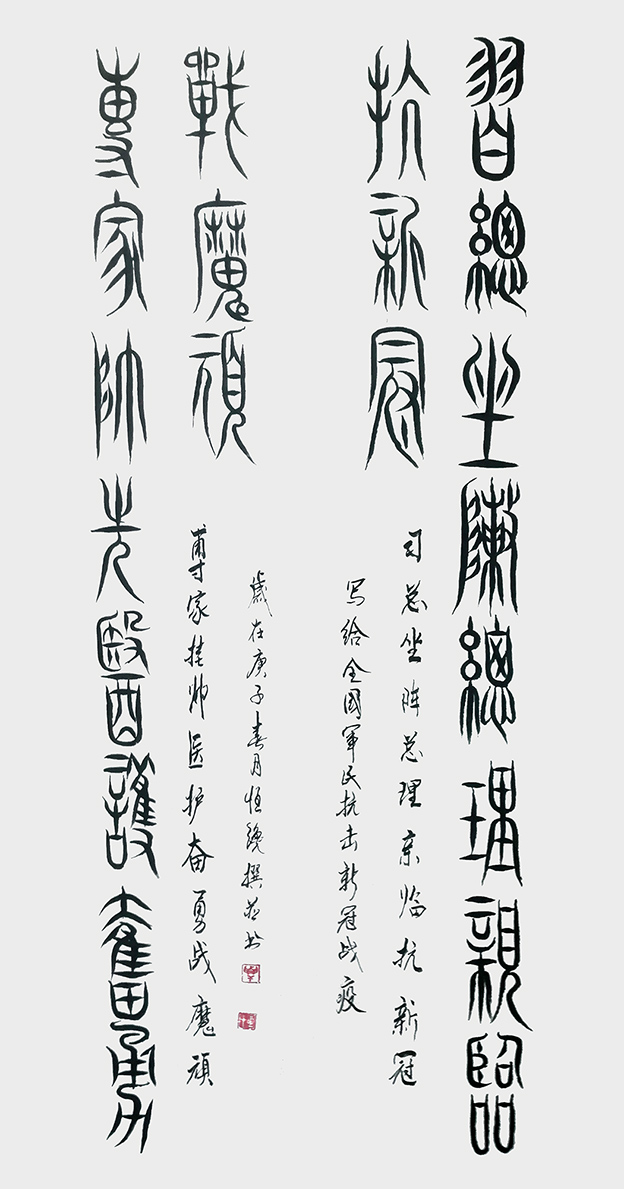 習總坐陳總理親臨
抗新冠
习总坐阵总理亲临抗新冠
写给全國軍民抗击新冠战疫
專家帥先醫護奮勇
戰魔頑
專家挂帅医护奋勇战魔顽
歲在庚子春月恒撰并书